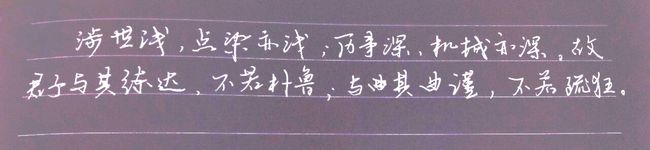 涉世浅，点染亦浅；历事深，机械亦深。故
君子与其练达，不若朴鲁；与曲其曲谨，不若疏狂。